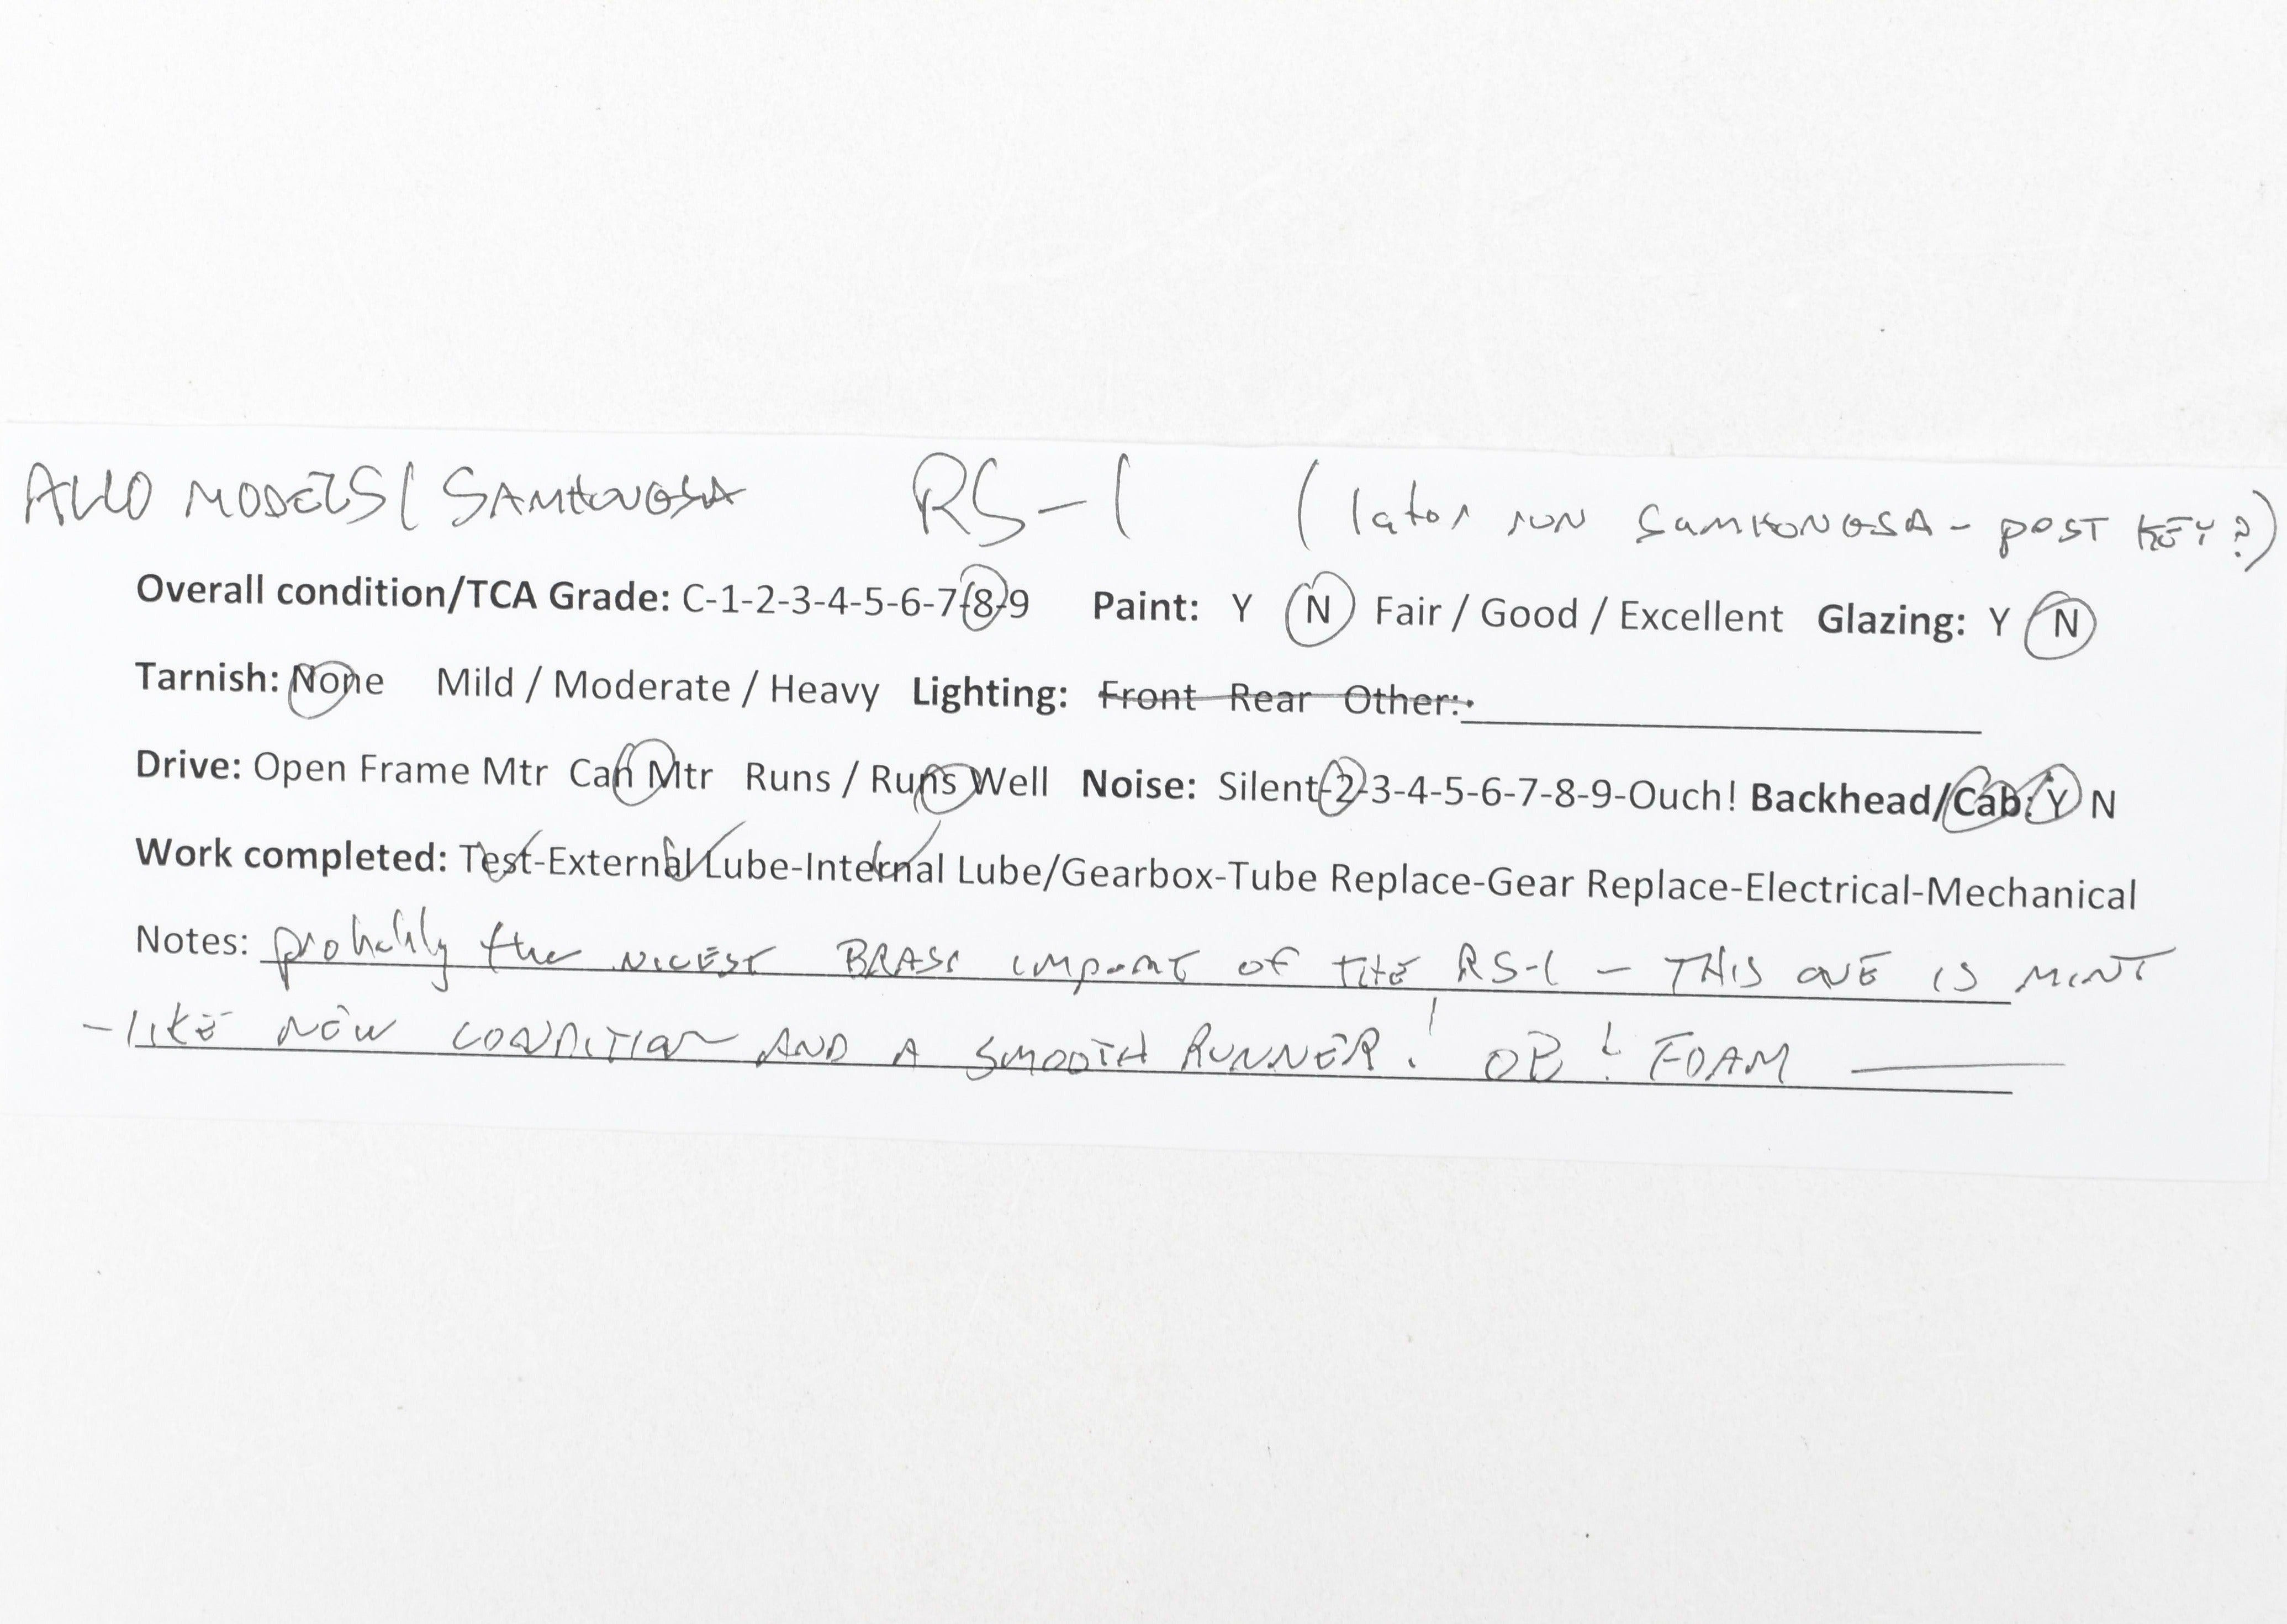 ALCO MODELS / SAMHONGSA RS-1 (later run SAMHONGSA - POST KEY?)
Overall condition/TCA Grade: C-1-2-3-4-5-6-7-8-9 Paint: Y N Fair / Good / Excellent Glazing: Y N
Tarnish: None Mild / Moderate / Heavy Lighting: Front Rear Other:
Drive: Open Frame Mtr Can Mtr Runs / Runs Well Noise: Silent-2-3-4-5-6-7-8-9-Ouch! Backhead/Cab: Y N
Work completed: Test-External Lube-Internal Lube/Gearbox-Tube Replace-Gear Replace-Electrical-Mechanical
Notes: probably the NICEST BRASS IMPORT OF THE RS-1 - THIS ONE IS MINT
- LIKE NEW CONDITION AND A SMOOTH RUNNER! OB & FOAM